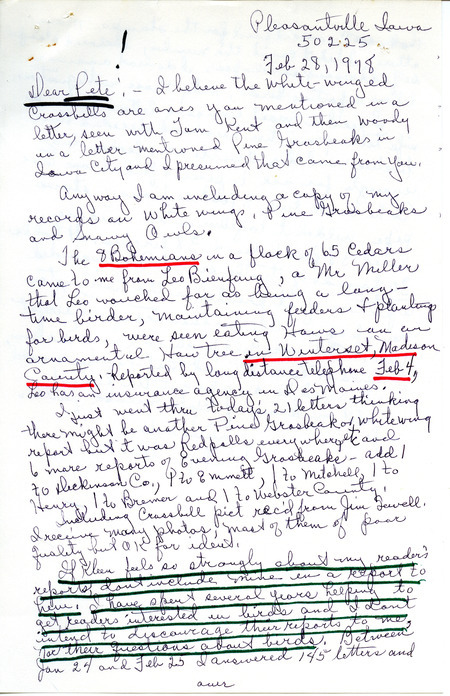 Pleasantville Iowa
50225
Feb 28, 1978
!
Dear Pete: - I believe the White-winged
Crossbills are ones you mentioned in a
letter, seen with Tom Kent and then Woody
in a letter mentioned Pine Grosbeaks in
Iowa City and I presumed that came from you.
Anyway I am including a copy of my
records on White wings, Pine Grosbeaks
and Snowy Owls.
The 8 Bohemians in a flock of 65 Cedars
came to me from Leo Bienfang, a Mr Miller
that Leo vouched for as being a long-
time birder, maintaining feeders + planting
for birds, were seen eating Haws on an
ornamental Haw tree in Winterset, Madison
County. Reported by long distance telephone Feb 4,
Leo has an insurance agency in Des Moines.
I just went thru today's 21 letters thinking
there might be another Pine Grosbeak or whitewing
report but it was Redpolls everywhere and
6 more reports of Evening Grosbeaks - add 1
to Dickinson Co, 1 to Emmett, 1 to Mitchell, 1 to
Henry, 1 to Bremer and 1 to Webster County.
Including Crossbill pict rec'd from Jim Fewell.
I receive many photos, most of them of poor
quality but OK for ident.
If Kleen feels so strongly about my reader's
reports, don't include mine in a report to
him. I have spent several years helping to
get readers interested in birds and I don't
intend to discourage their reports to me,
or their questions about birds. Between
Jan 24 and Feb 25 I answered 145 letters and
over